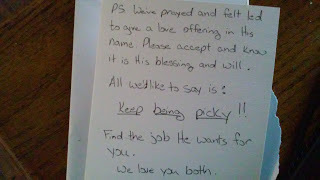 PS We've prayed and felt led
to give a love offering in His
name. Please accept and know
it is His blessing and will.
All we'd like to say is:
Keep being picky!!
Find the job He wants for
you.
We love you both.